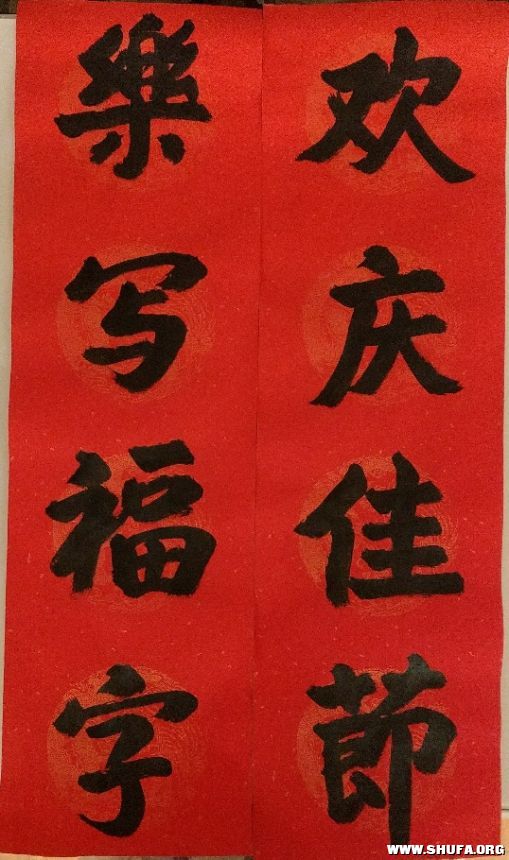 欢庆佳節
樂写福字
WWW.SHUFA.ORG